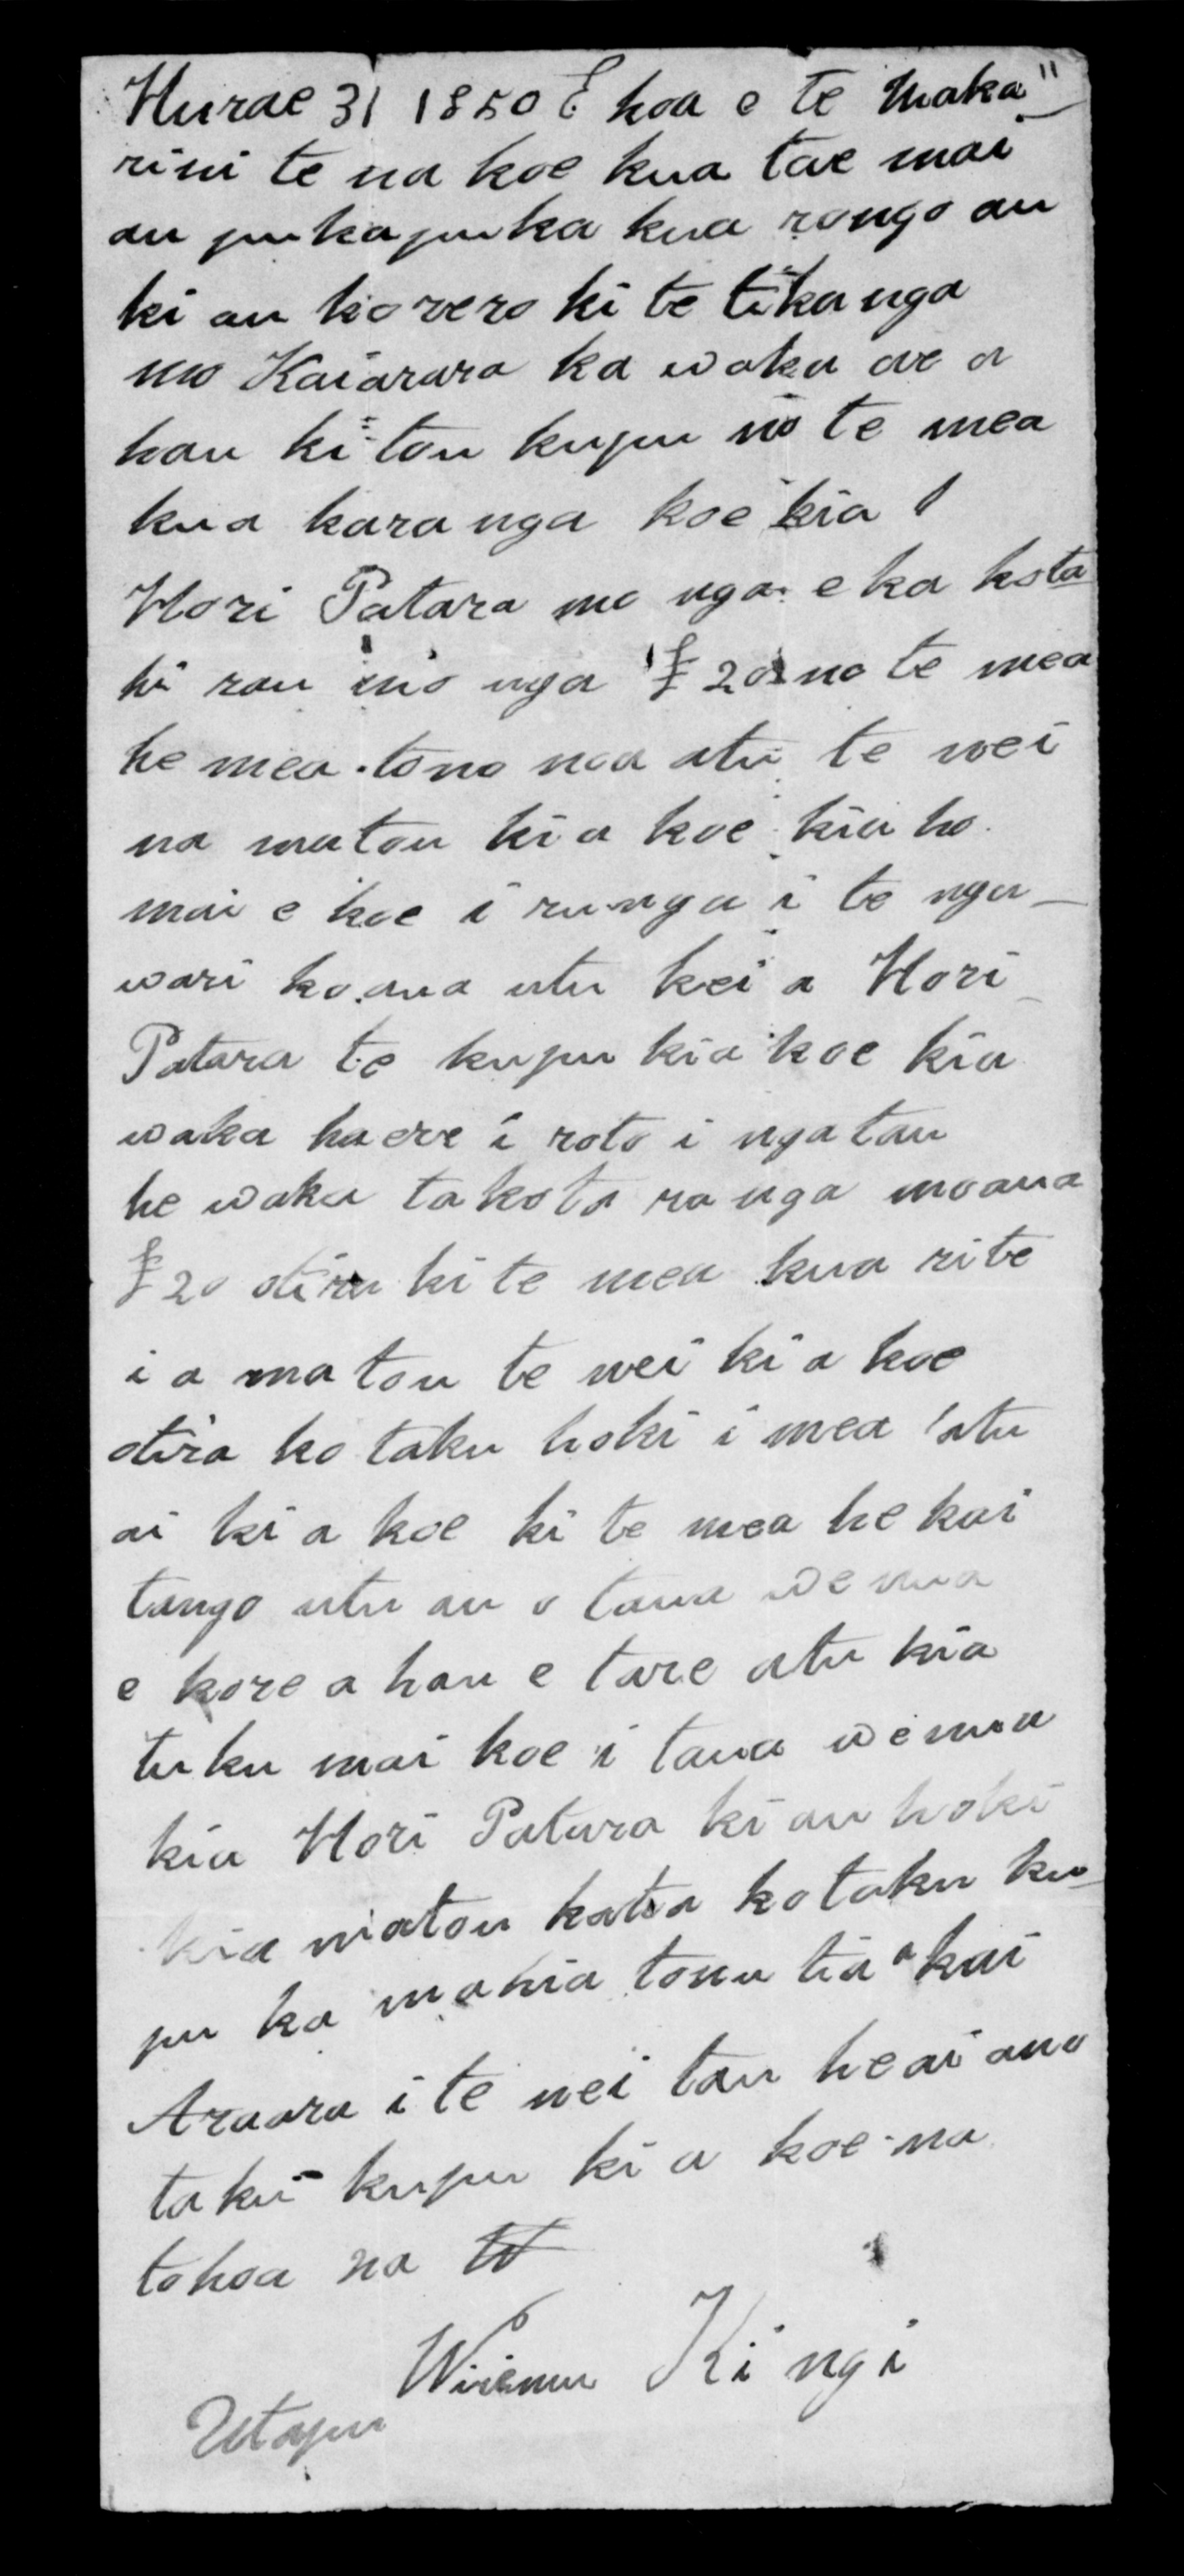 Hurae 31 1850 E hoa e te Maka"
rini te na koe kua tae mai
au pukapuka kua rongo au
ki au korero ki te tikanga
mo Kaiarara ka waka ae a
hau ki tou kupu no te mea
kua karanga koe kia
Hori Patara mo nga eka kota
hi rau mo nga £20 no te mea
he mea tono noa atu te nei
na matou ki a koe kia ho
mai e koe i runga i te nga-
wari ko ana utu kei a Hori
Patara te kupu kia koe kia
waka haere i roto i nga tau
he waka takoto ra nga moana
£20 otira ki te mea kua rite
i a matou te nei ki a koe
otira ko taku hoki i mea atu
ai ki a koe ki te mea he kai
tango utu au o taua wenua
e kore a hau e tare atu kia
tuku mai koe i taua wenua
kia Hori Patara ki au hoki
kia matou katoa ko taku ku-
pu ka mahia tonutia a kai
Araara i te nei tau heai ano
taku kupu ki a koe na
to hoa na W
Wiremu Kingi
Utapu